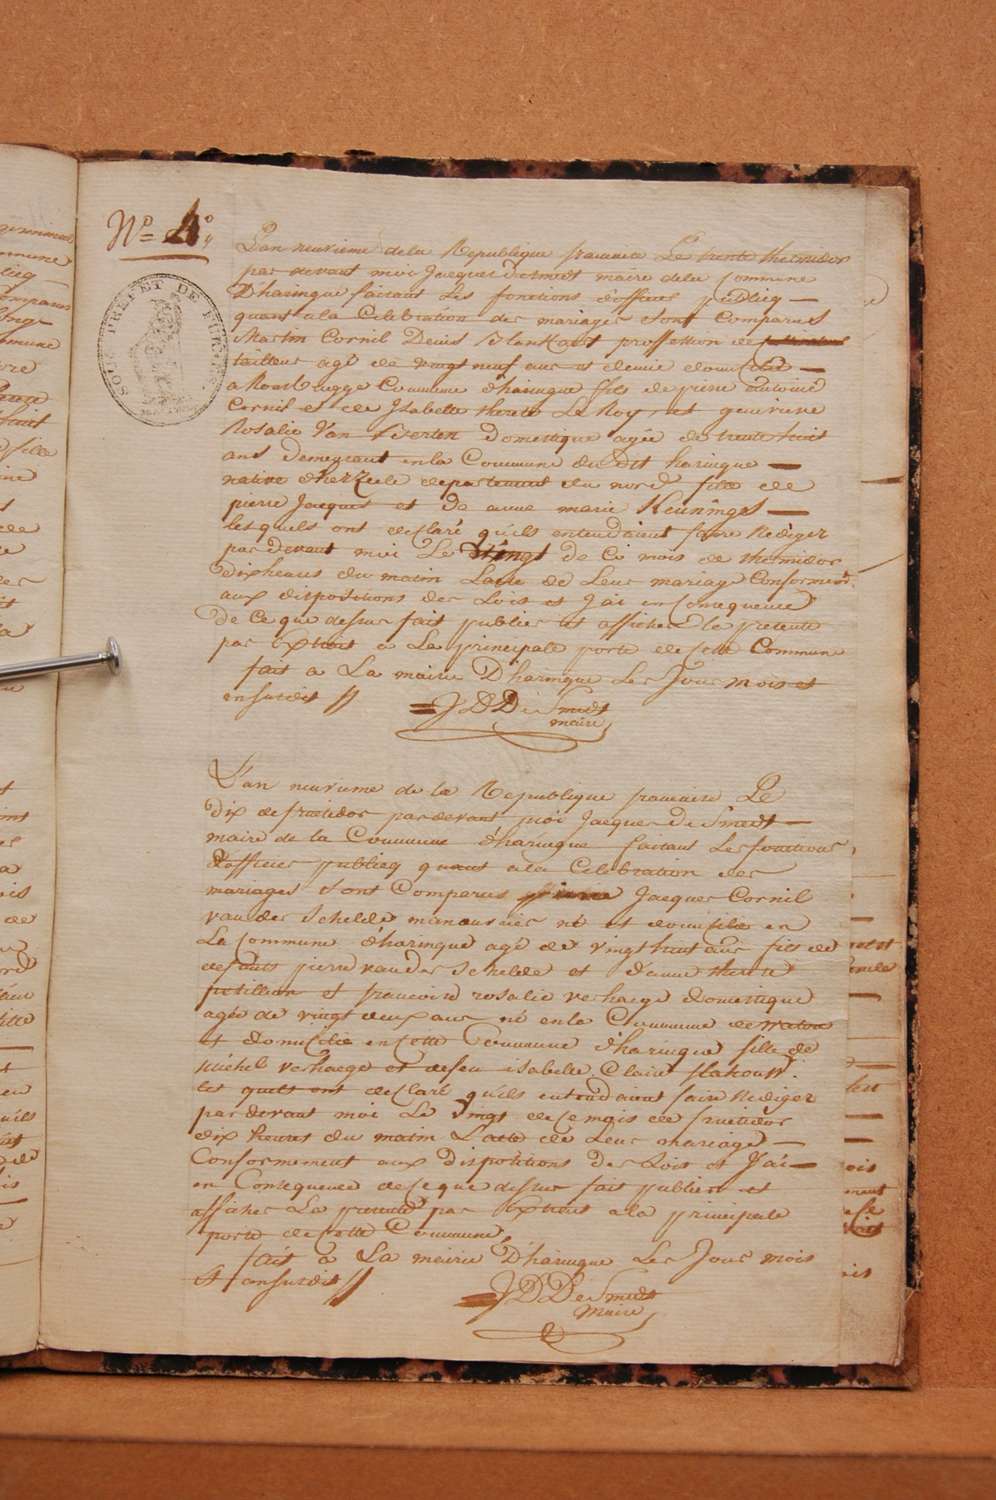 N.° 4.°
SOUS PREFET DE FURNES
L'an neuvieme de la Republique francaise Le trente thermidor
par devant moi Jacques Desmedt maire de la Commune
D'haringue faisant Les fonctions d'officier publicq —
quant a la Celebration des mariages sont Comparus
Martin Cornil Denis Blankaert proffession de
tailleur agé de vingt neuf ans et demie domicilié —
a Roesbrugge Commune d'haringue fils de pierre antoine
Cornil et de Isabelle therese Le Roy, et genevieve
Rosalie Van Werten domestique agée de trente huit
ans demeurant en la Commune du dit haringue —
native d'herzeele departement du nord fille de
pierre Jacques et de anne marie Keuninges —
lesquels ont declaré qu'ils entendaient faire Rediger
par devant moi Le vingt de Ce mois de thermidor
dix heures du matin L'acte de Leur mariage Conformem.t
aux dispositions des Lois et J'ai en Consequence
de Ce que dessus fait publier et afficher la presente
par Extrait a La principale porte de cette Commune
fait a La mairie D'haringue Les Jour mois et
an susdit //
J D DeSmedt
maire
L'an neuvieme de la Republique francaise Le
dix de fructidor par devant moi Jacques DeSmedt —
maire de la Commune d'haringue faisant Les fonctions
d'officier publicq quant a la Celebration des
mariages sont Comparus Jacques Cornil
vander Schelde manouvrier né et domicilié en
La Commune d'haringue agé de vingt huit ans fils de
defunts pierre vander Schelde et d'anne therese
petillion et francoise rosalie verhaege domestique
agée de vingt deux ans né en la Commune de watou
et domicilié en cette Commune d'haringue fille de
michel verhaege et defeu isabelle Claire
les quels ont declaré qu'ils entendaient faire Rediger
par devant moi Le vingt de ce mois de fructidor
dix heures du matin L'acte de Leur mariage —
Conformement aux dispositions des Lois et J'ai —
en Consequence de Ce que dessus fait publier et
afficher La presente par Extrait a la principale
porte de cette Commune,
fait a La mairie D'haringue Les Jour mois
et an susdit //
J D DeSmedt
Maire